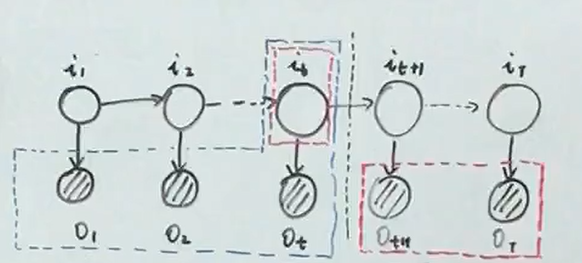 i₁ i₂ iₜ iₜ₊₁ i_T
O₁ O₂ Oₜ Oₜ₊₁ O_T